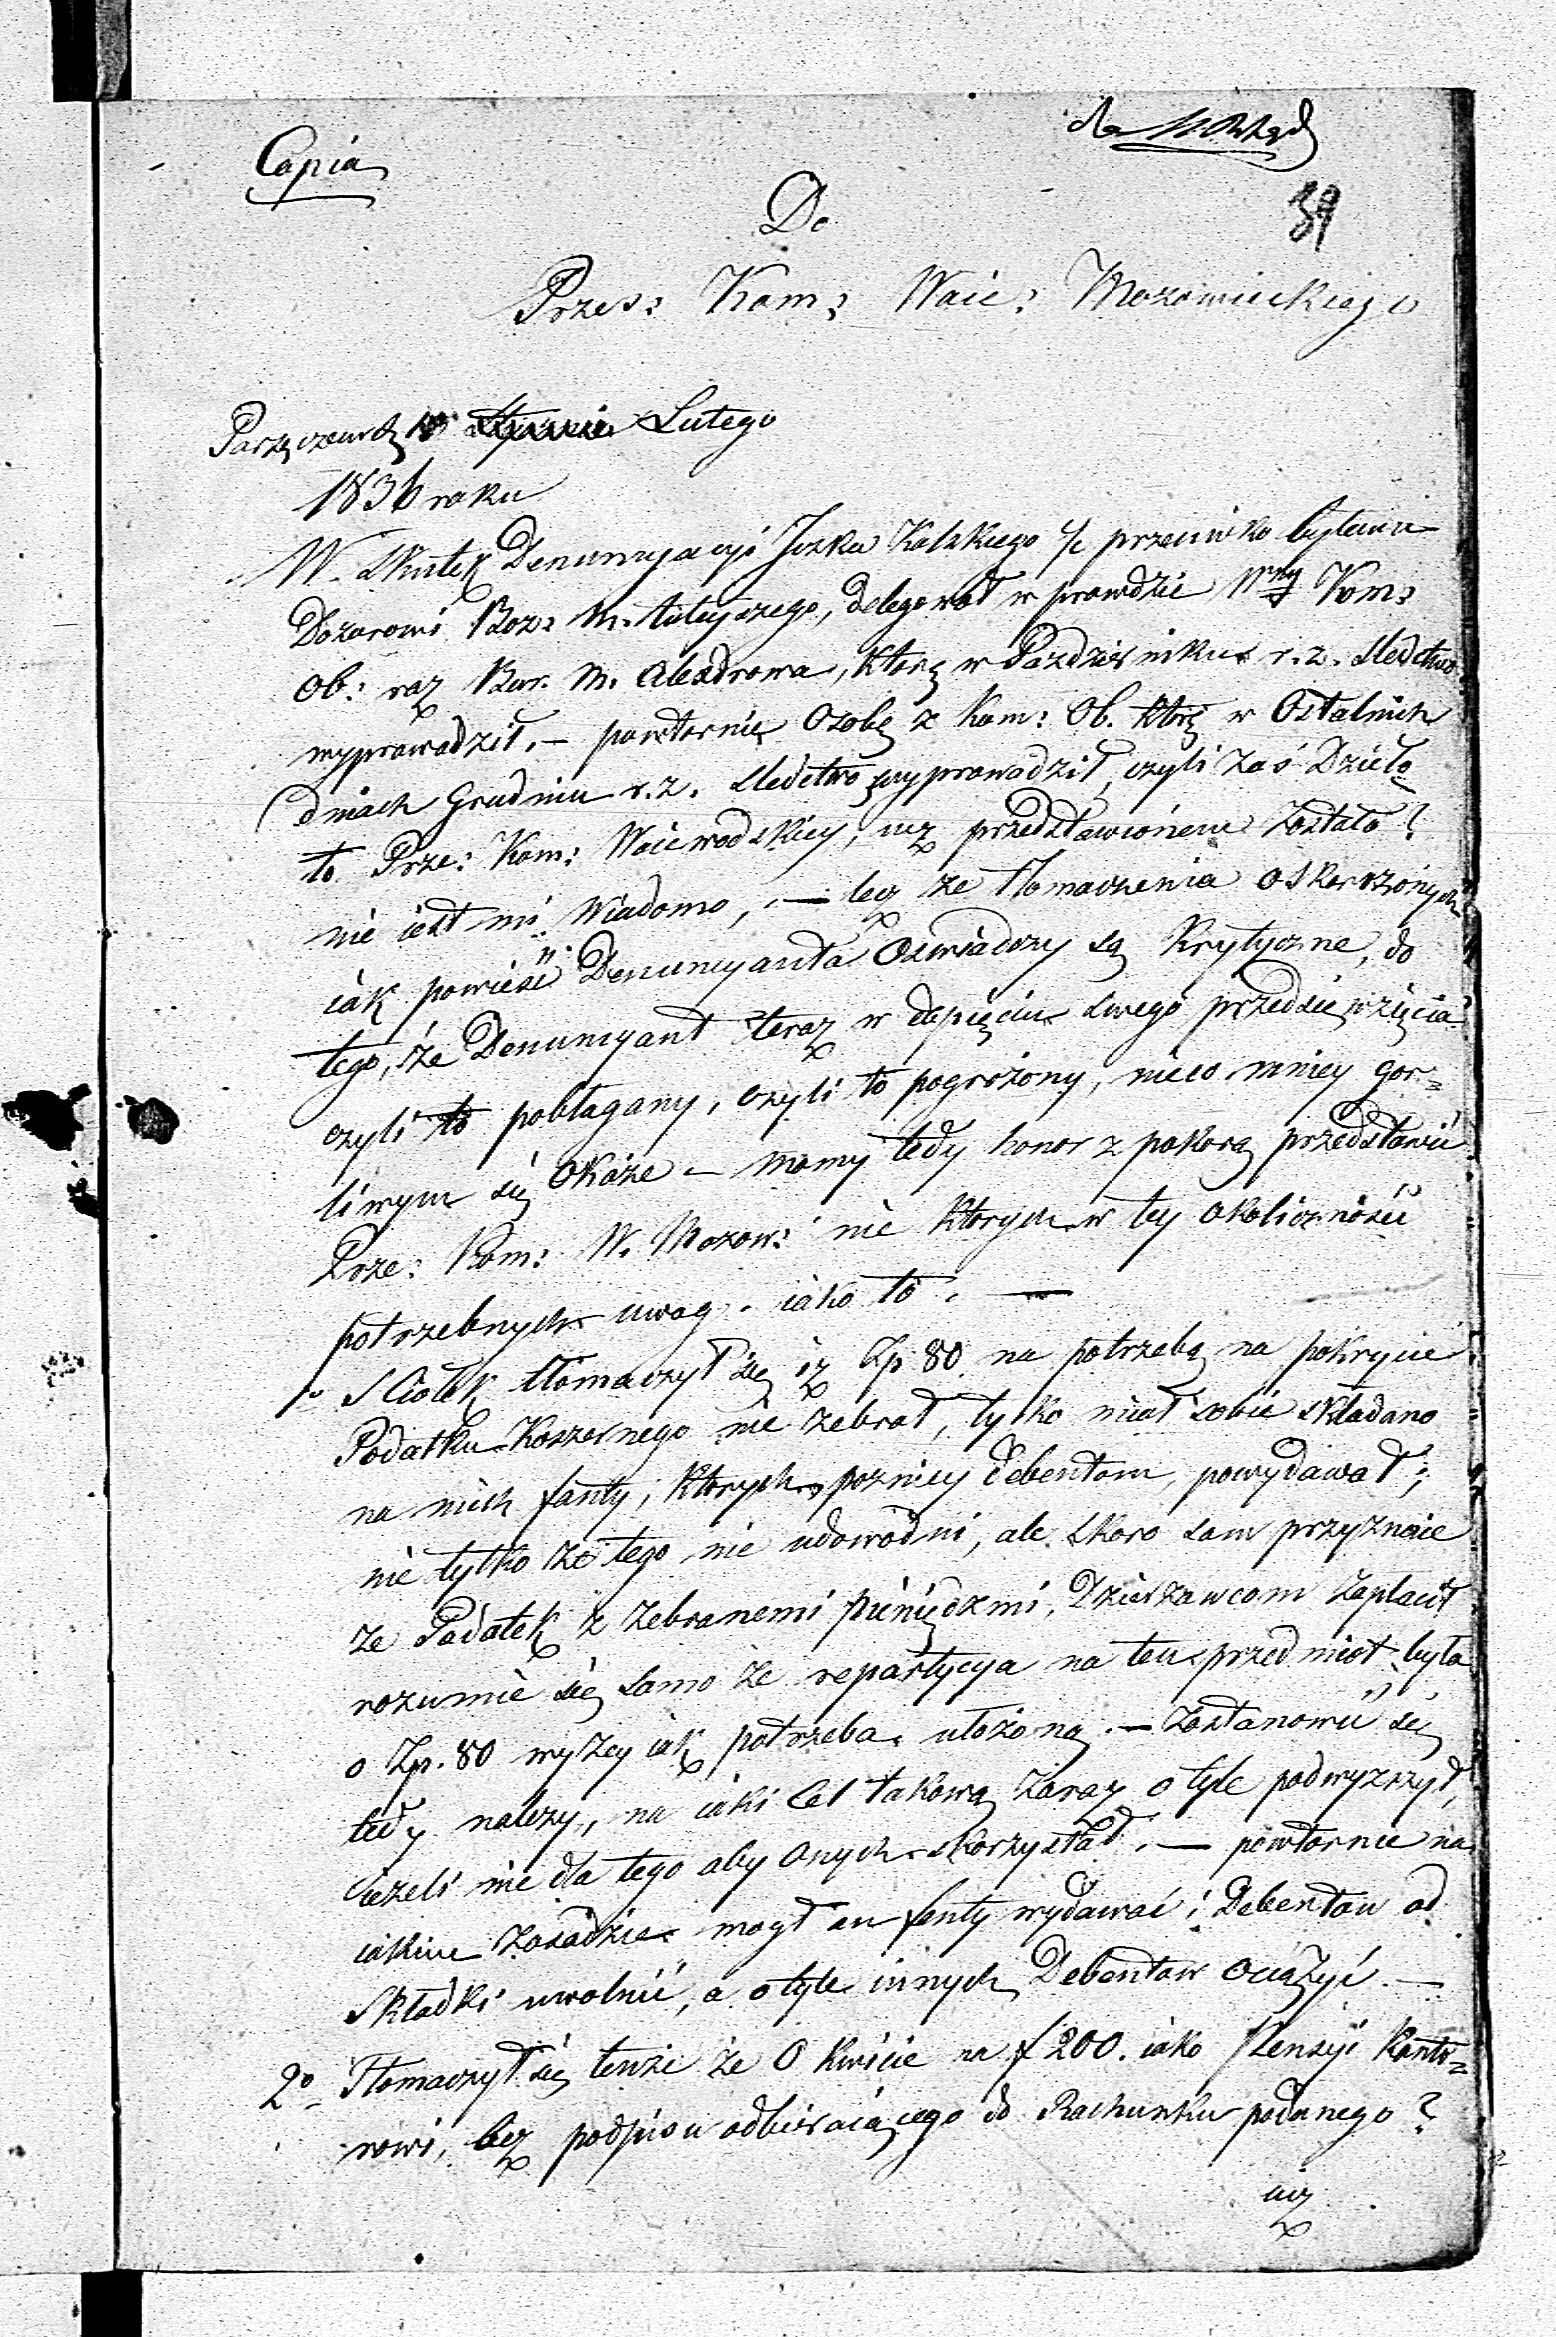 Copia
39
Do
Przes: Kom: Woie: Mazowieckiego
Parzęczew d. 18 Lutego
1836 roku
W Skutek Denuncyacyi Joska Kolskiego /: przeciwko byłemu
Dozorowi Boz: M. tuteyszego, delegował w prawdzie Wny Kom:
Ob: raz Bur. M. Alexdrowa, który w Pazdzierniku r. z. Sledctwo
wyprowadził. – powtornie Osobę z Kom: Ob. która w Ostatnich
dniach Grudniu r. z. Sledctwo wyprowadził, czyli zaś Dzieło
to Prze: Kom: Woiewodskiey, iuz przedstawionem Zostało?
nie iest mi Wiadomo, – lecz ze tłomaczenia oskarzonych
iak powieść Denuncyanta Oswiadczy są Krytyczne, do
tego, że Denuncyant teraz w dopięciu swego przedsiewzięcia
czyli to pobłagany, czyli to pogrożony, nieco mniey gor=
liwym się Okaże – mamy tedy honor z pokorą przedstawić
Prze: Kom: W. Mazow: nie ktorych w tey Okoliczności
potrzebnych uwag. iako to. —
1o S Ciołek tłomaczył się iz Zp 80 na potrzebę na pokrycie
Podatku Koszernego nie zebrał, tylko miał sobie składano
na nich fanty, ktorych pozniey Debentom, powydawał;
nie tylko ze tego nie udowodni, ale skoro sam przyznaie
że Podatek z zebranemi pieniędzmi, Dzierzawcom zapłacił
rozumie się samo ze repartycya na ten przedmiot była
o Zp. 80 wyżey iak potrzeba, ułożoną. – Zostanowić się
tedy nalezy, na iaki Cel takową zaraz o tyle podwyzszył,
ieżeli nie dla tego aby Onych skorzystał. — powtornie na
iakim zasadzie mogł on fanty wydawać i Debentow od
Składki uwolnić, a o tyle innych Debentow Ociążyć. —
2o Tłomaczył się tenże że O Kwicie na f 200. iako Pensyi Kanto=
rowi, bez podpisu odbieraiącego do Rachunku podanego?
iuz